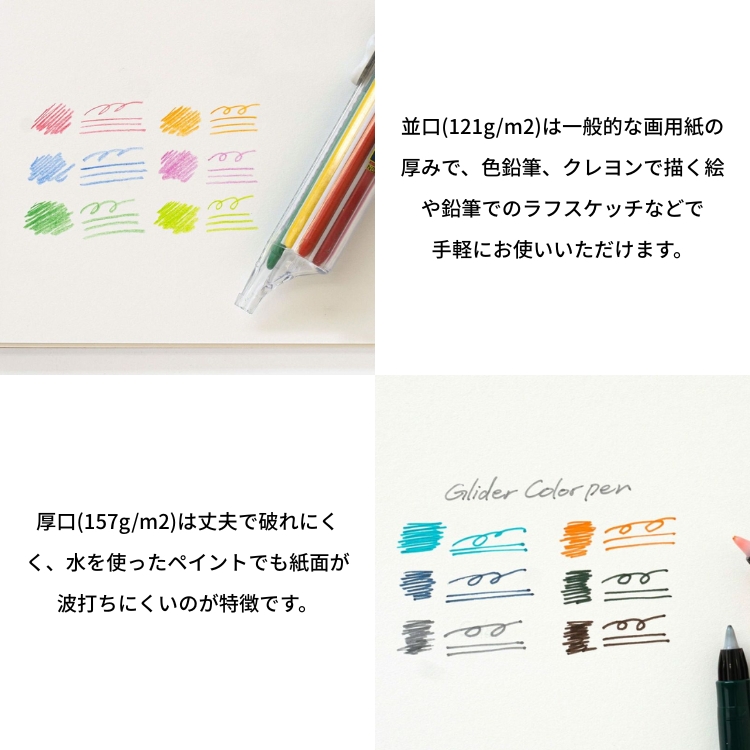 並口(121g/m2)は一般的な画用紙の
厚みで、色鉛筆、クレヨンで描く絵
や鉛筆でのラフスケッチなどで
手軽にお使いいただけます。
厚口(157g/m2)は丈夫で破れにく
く、水を使ったペイントでも紙面が
波打ちにくいのが特徴です。
Glider Color pen